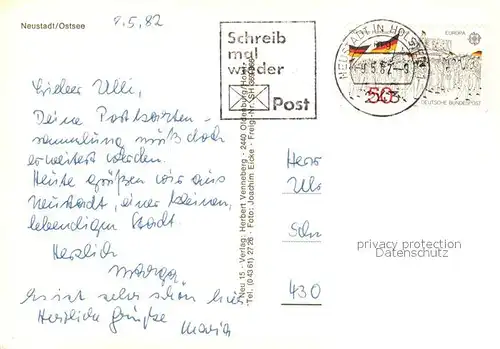 Neustadt/Ostsee
8.5.82
Lieber Ulli,
Deine Postkarten-
sammlung muß doch
erweitert werden.
Heute grüßen wir aus
Neustadt, einer kleinen,
lebendigen Stadt.
Herzlich
Es ist sehr schön hier
Herzliche Grüße
Maria
Schreib
mal
wieder
Post
NEUSTADT IN HOLSTEIN
EUROPA
50
DEUTSCHE BUNDESPOST
Neu 15 - Verlag: Herbert Venneberg - 2440 Oldenburg/Holst.
Tel. (04361) 2726 - Foto: Joachim Eicke - Freig.-Nr. SH
Herr
privacy protection
Datenschutz
430